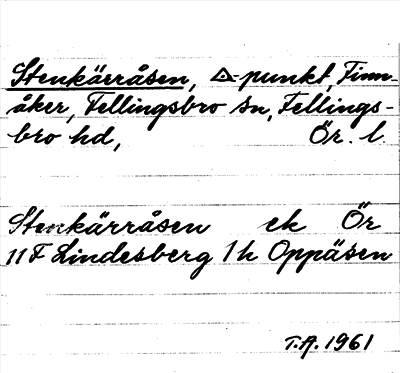 Stenkärråsen, △-punkt, Finn-
åker, Fellingsbro sn, Fellings-
bro hd, Ör. l.
Stenkärråsen ek Ör
11F Lindesberg 1h Oppåsen
T.A. 1961